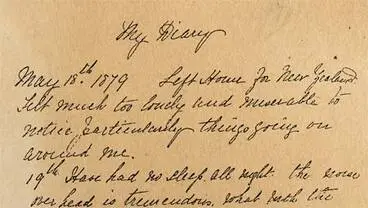 My Diary
May 18th 1879 Left Home for New Zealand
Felt much too lonely and miserable to
notice particularly things going on
around me.
19th Have had no sleep all night the noise
over head is tremendous, what with the